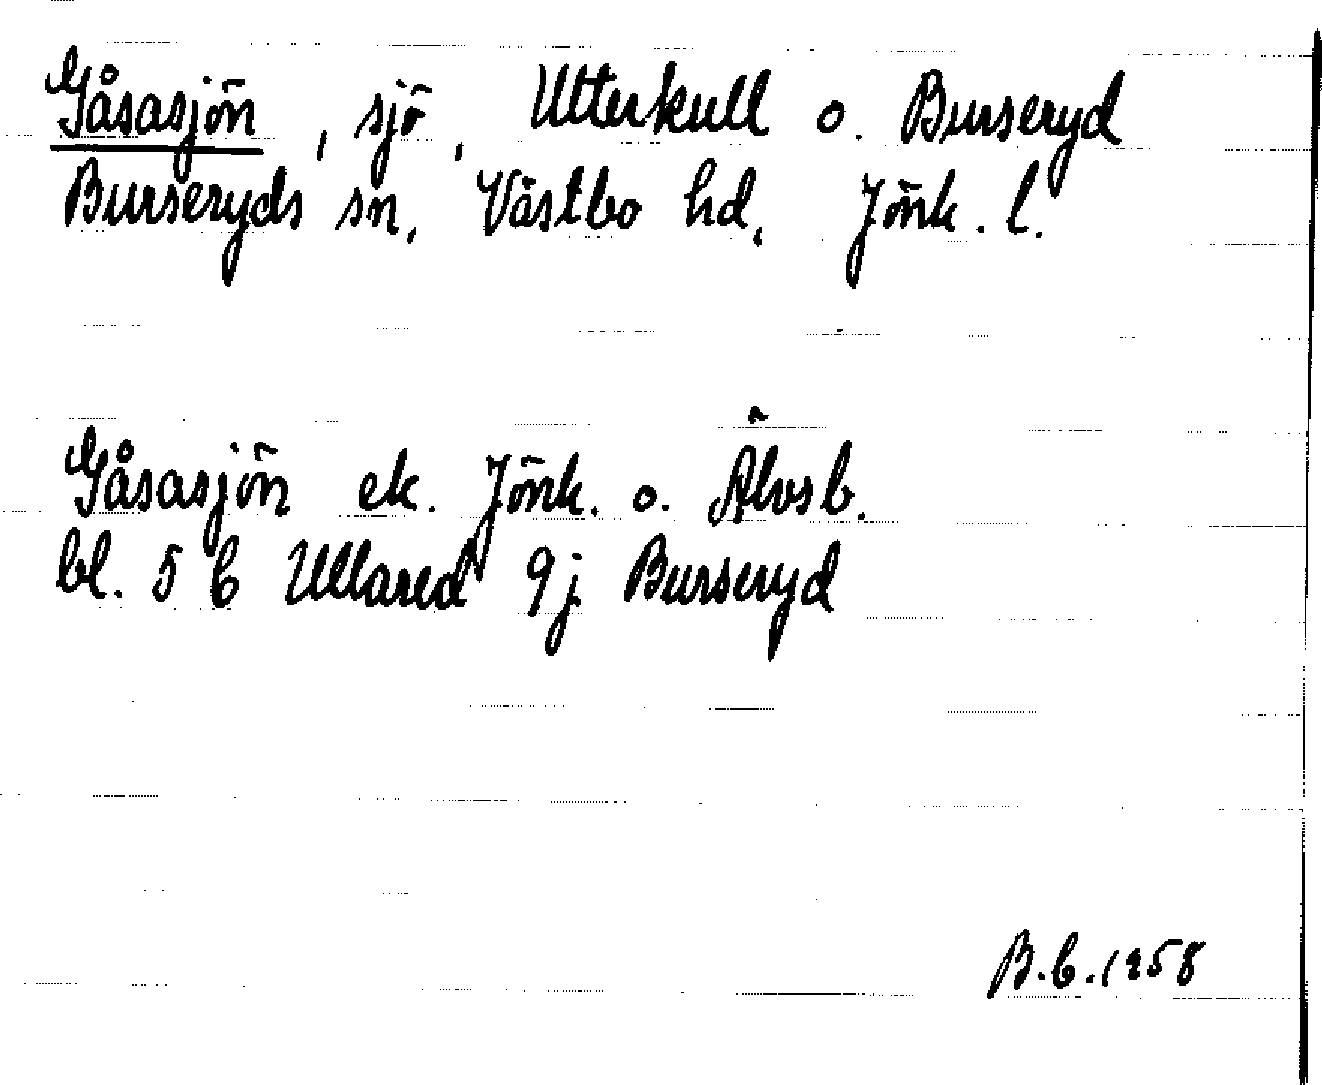 Gåsasjön, sjö, Utterkull o. Burseryd
Burseryds sn. Västbo hd. Jönk. l.
Gåsasjön ek. Jönk. o. Älvsb.
bl. 5 C Ullared 9j Burseryd
B.C. 1958